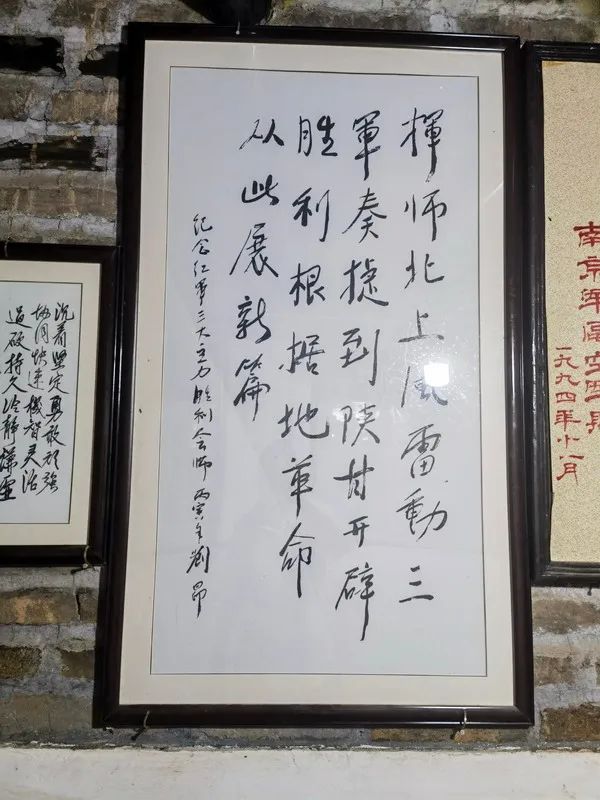 南京军区空
一九九四年
揮师北上风雷動三
軍奏捷到陕甘开辟
胜利根据地革命
从此展新篇
纪念红军三大主力胜利会师 丙寅年劉昂
沉着坚定勇敢顽强
协同快速機智灵活
过硬持久冷静